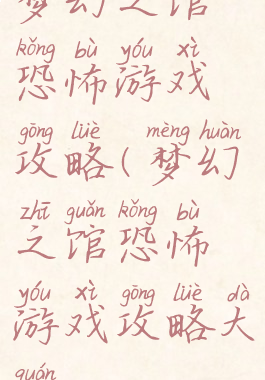 梦幻之馆
kǒng bù yóu xì
恐怖游戏
gōng lüè mèng huàn
攻略(梦幻
zhī guǎn kǒng bù
之馆恐怖
yóu xì gōng lüè dà
游戏攻略大
quán